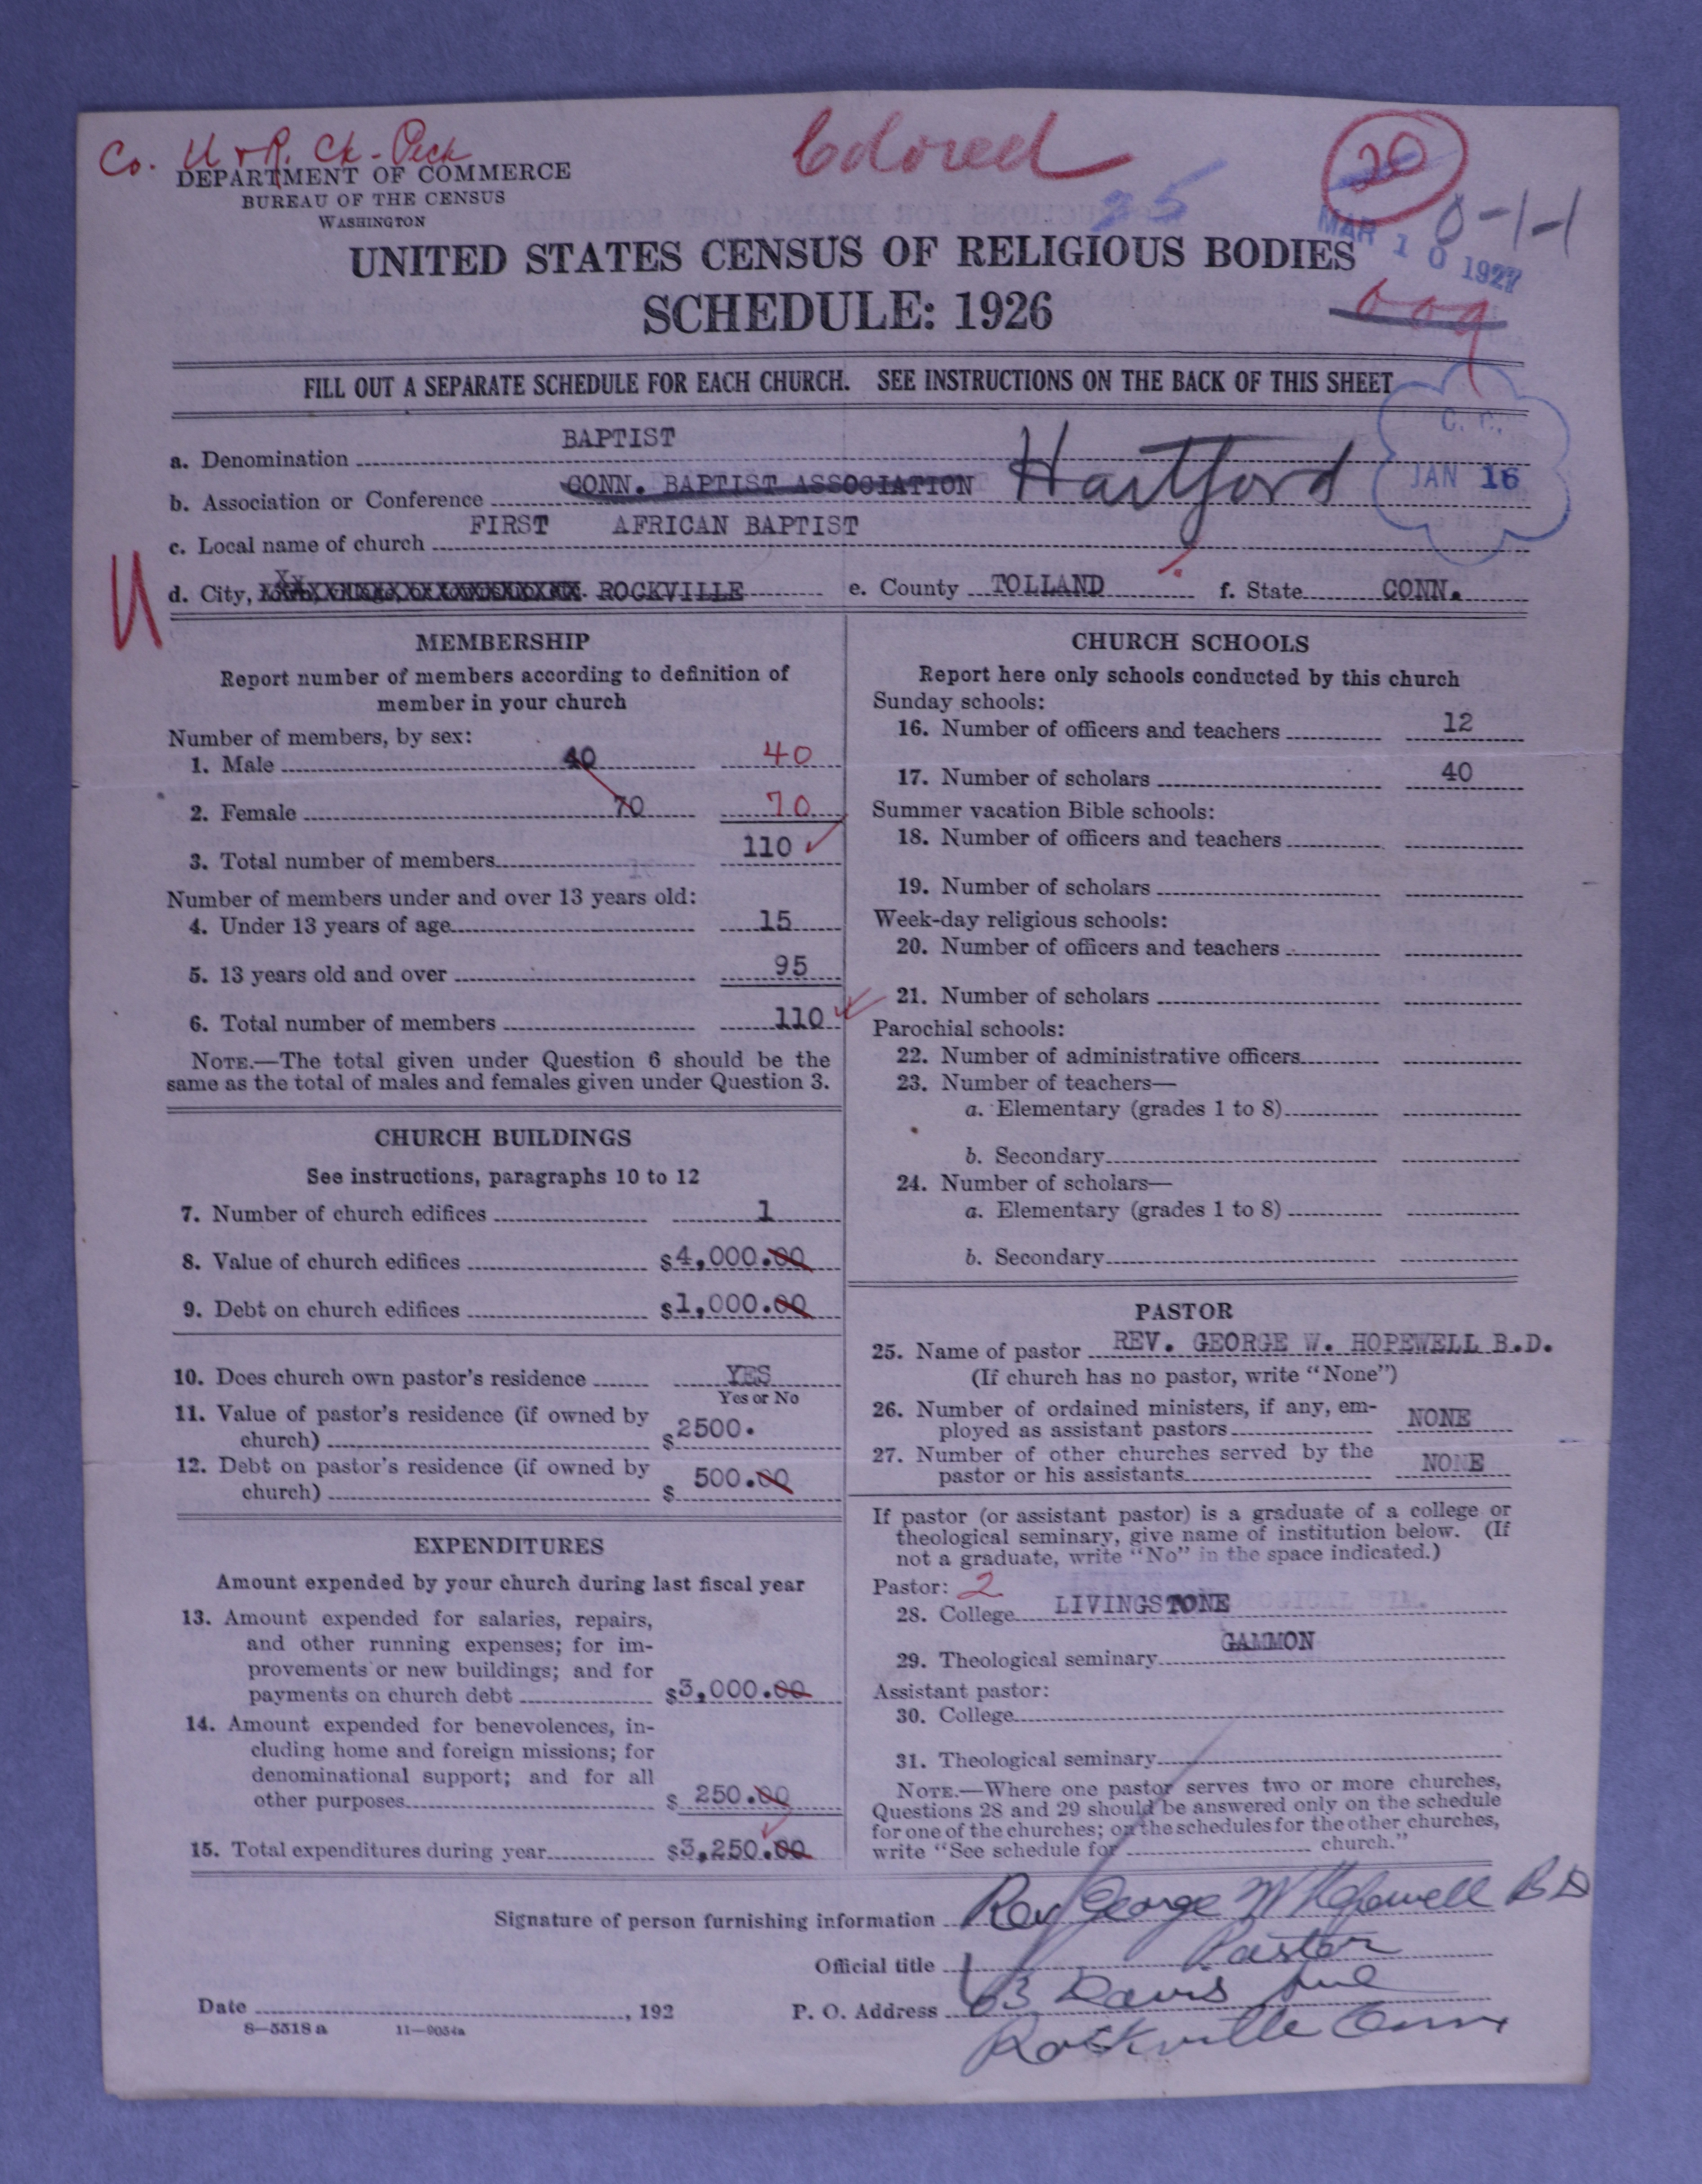 Co. U & R. Ck - Peck
Colored
20
DEPARTMENT OF COMMERCE
BUREAU OF THE CENSUS
WASHINGTON
35
MAR 10 1927
0-1-1
UNITED STATES CENSUS OF RELIGIOUS BODIES
SCHEDULE: 1926
009
FILL OUT A SEPARATE SCHEDULE FOR EACH CHURCH. SEE INSTRUCTIONS ON THE BACK OF THIS SHEET
C. C.
JAN 16
a. Denomination BAPTIST
b. Association or Conference CONN. BAPTIST ASSOCIATION Hartford
c. Local name of church FIRST AFRICAN BAPTIST
U
d. City, ROCKVILLE e. County TOLLAND f. State CONN.
MEMBERSHIP
Report number of members according to definition of
member in your church
Number of members, by sex:
1. Male 40 40
2. Female 70 70
3. Total number of members 110
Number of members under and over 13 years old:
4. Under 13 years of age 15
5. 13 years old and over 95
6. Total number of members 110
NOTE.—The total given under Question 6 should be the
same as the total of males and females given under Question 3.
CHURCH BUILDINGS
See instructions, paragraphs 10 to 12
7. Number of church edifices 1
8. Value of church edifices $4,000.00
9. Debt on church edifices $1,000.00
10. Does church own pastor's residence YES
Yes or No
11. Value of pastor's residence (if owned by
church) $2500.
12. Debt on pastor's residence (if owned by
church) $ 500.00
EXPENDITURES
Amount expended by your church during last fiscal year
13. Amount expended for salaries, repairs,
and other running expenses; for im-
provements or new buildings; and for
payments on church debt $3,000.00
14. Amount expended for benevolences, in-
cluding home and foreign missions; for
denominational support; and for all
other purposes $ 250.00
15. Total expenditures during year $3,250.00
CHURCH SCHOOLS
Report here only schools conducted by this church
Sunday schools:
16. Number of officers and teachers 12
17. Number of scholars 40
Summer vacation Bible schools:
18. Number of officers and teachers
19. Number of scholars
Week-day religious schools:
20. Number of officers and teachers
21. Number of scholars
Parochial schools:
22. Number of administrative officers
23. Number of teachers—
a. Elementary (grades 1 to 8)
b. Secondary
24. Number of scholars—
a. Elementary (grades 1 to 8)
b. Secondary
PASTOR
25. Name of pastor REV. GEORGE W. HOPEWELL B.D.
(If church has no pastor, write "None")
26. Number of ordained ministers, if any, em-
ployed as assistant pastors NONE
27. Number of other churches served by the
pastor or his assistants NONE
If pastor (or assistant pastor) is a graduate of a college or
theological seminary, give name of institution below. (If
not a graduate, write "No" in the space indicated.)
Pastor: 2
28. College LIVINGSTONE
29. Theological seminary GAMMON
Assistant pastor:
30. College
31. Theological seminary
NOTE.—Where one pastor serves two or more churches,
Questions 28 and 29 should be answered only on the schedule
for one of the churches; on the schedules for the other churches,
write "See schedule for church."
Signature of person furnishing information Rev George W Hopewell B D
Official title Pastor
Date , 192 P. O. Address 63 Davis Ave
8—5518 a 11—9054a
Rockville Conn